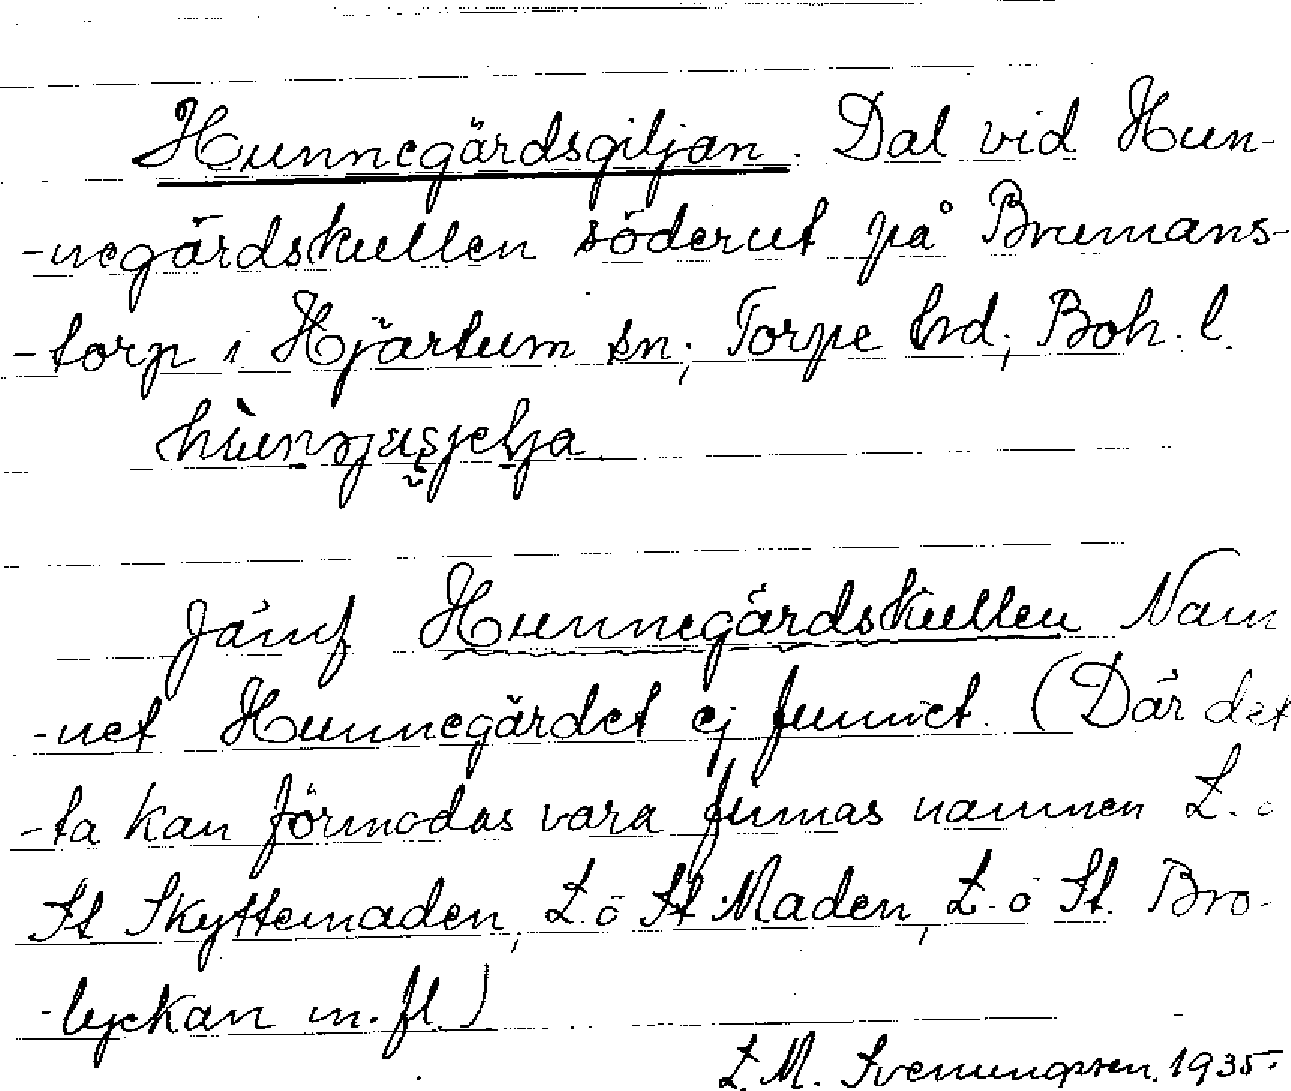 Hunnegärdsgiljan. Dal vid Hun-
-negärdskullen söderut på Brumans-
-torp i Hjärtum sn; Torpe hrd; Boh. l.
Jämf Hunnegärdskullen Nam
-net Hunnegärdet ej funnet. (Där det
-ta kan förmodas vara finnas namnen L. o
St Skyttemaden, L. o St Maden, L. o St. Bro-
-lyckan m. fl.)
L. M. Svenungsson. 1935.